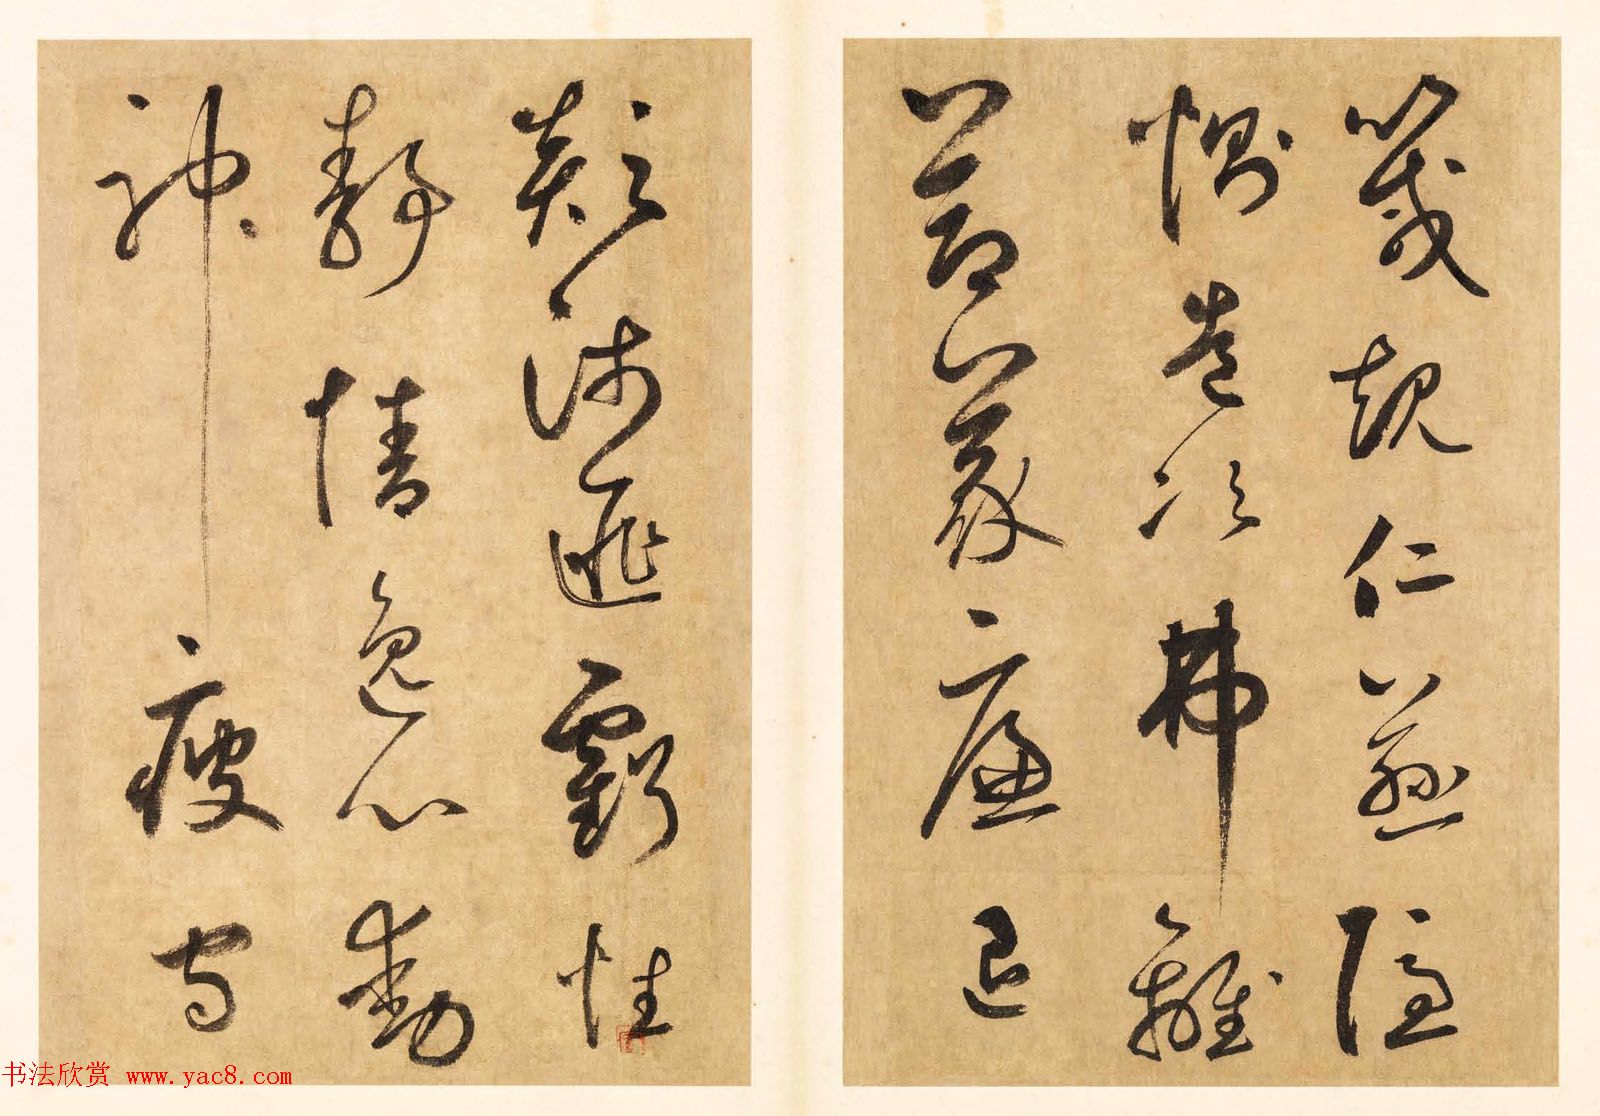 箴規仁慈隱
惻造次弗離
節義廉退
顛沛匪虧性
靜情逸心動
神疲守
书法欣赏 www.yac8.com